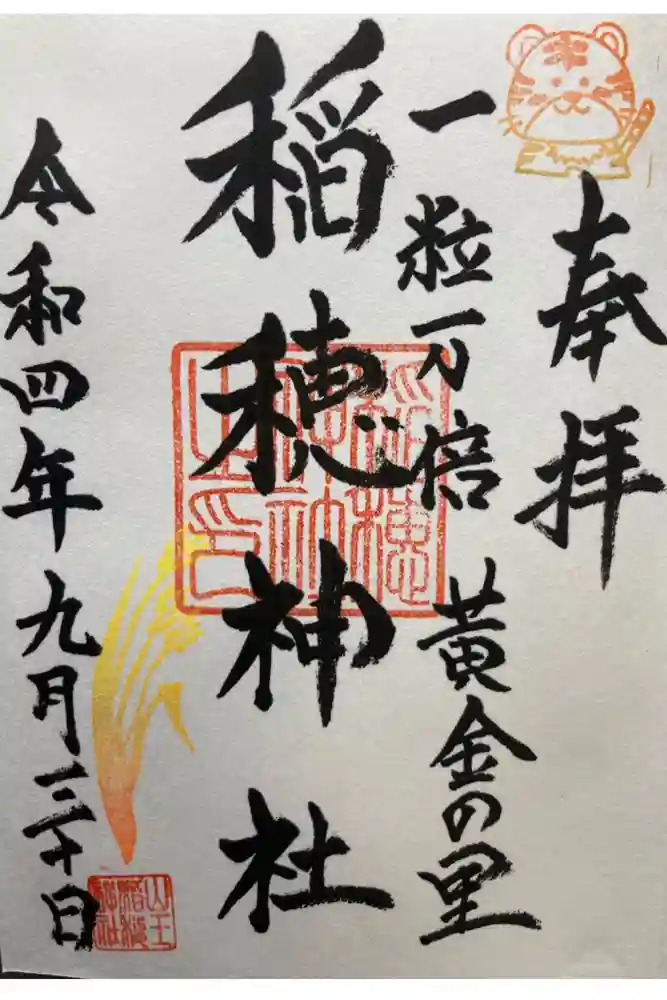 奉拝
一粒万倍 黄金の里
稲穂神社
令和四年九月三十日
稲穂神社之印